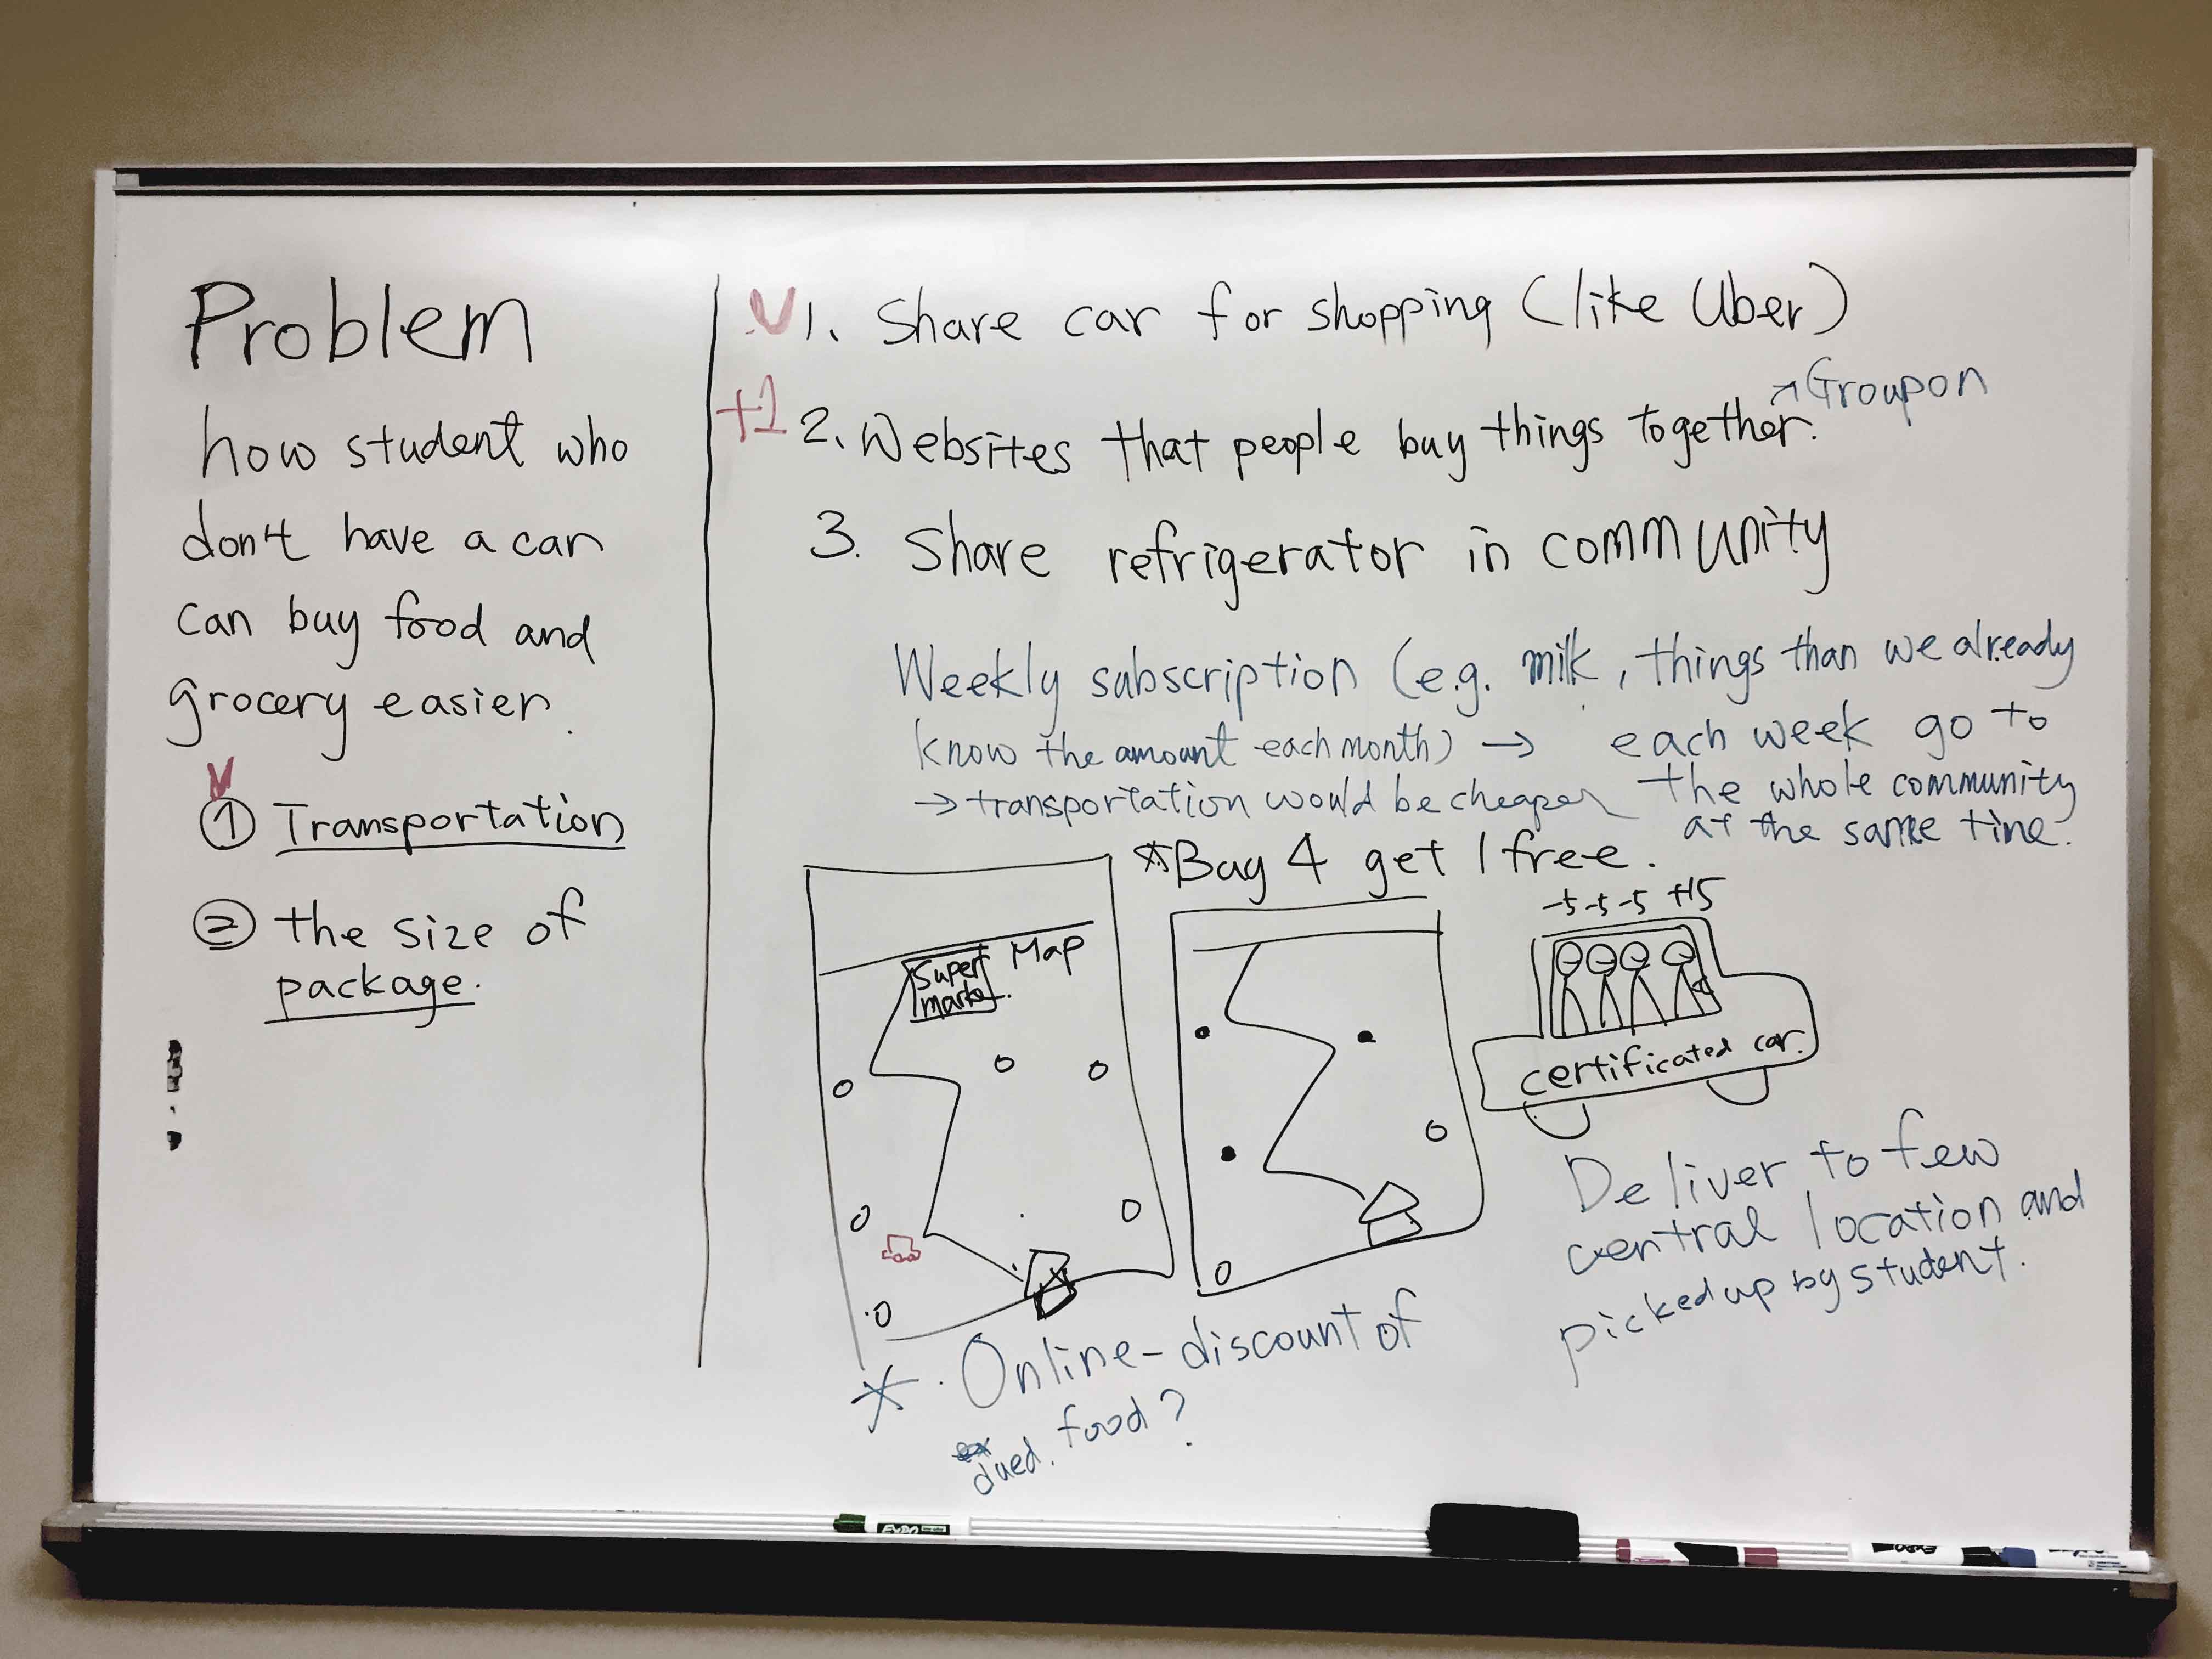 Problem
how student who
don't have a car
can buy food and
grocery easier.
V
① Transportation
② the size of
package.
V 1. Share car for shopping (like Uber)
→Groupon
+1 2. Websites that people buy things together.
3. Share refrigerator in community
Weekly subscription (e.g. milk, things than we already
know the amount each month) → each week go to
→ transportation would be cheaper the whole community
at the same time.
☆Buy 4 get 1 free.
-5 -5 -5 +15
Map
Super
market.
certificated car.
Deliver to few
central location and
picked up by student.
* . Online-discount of
dued. food?
EXPO